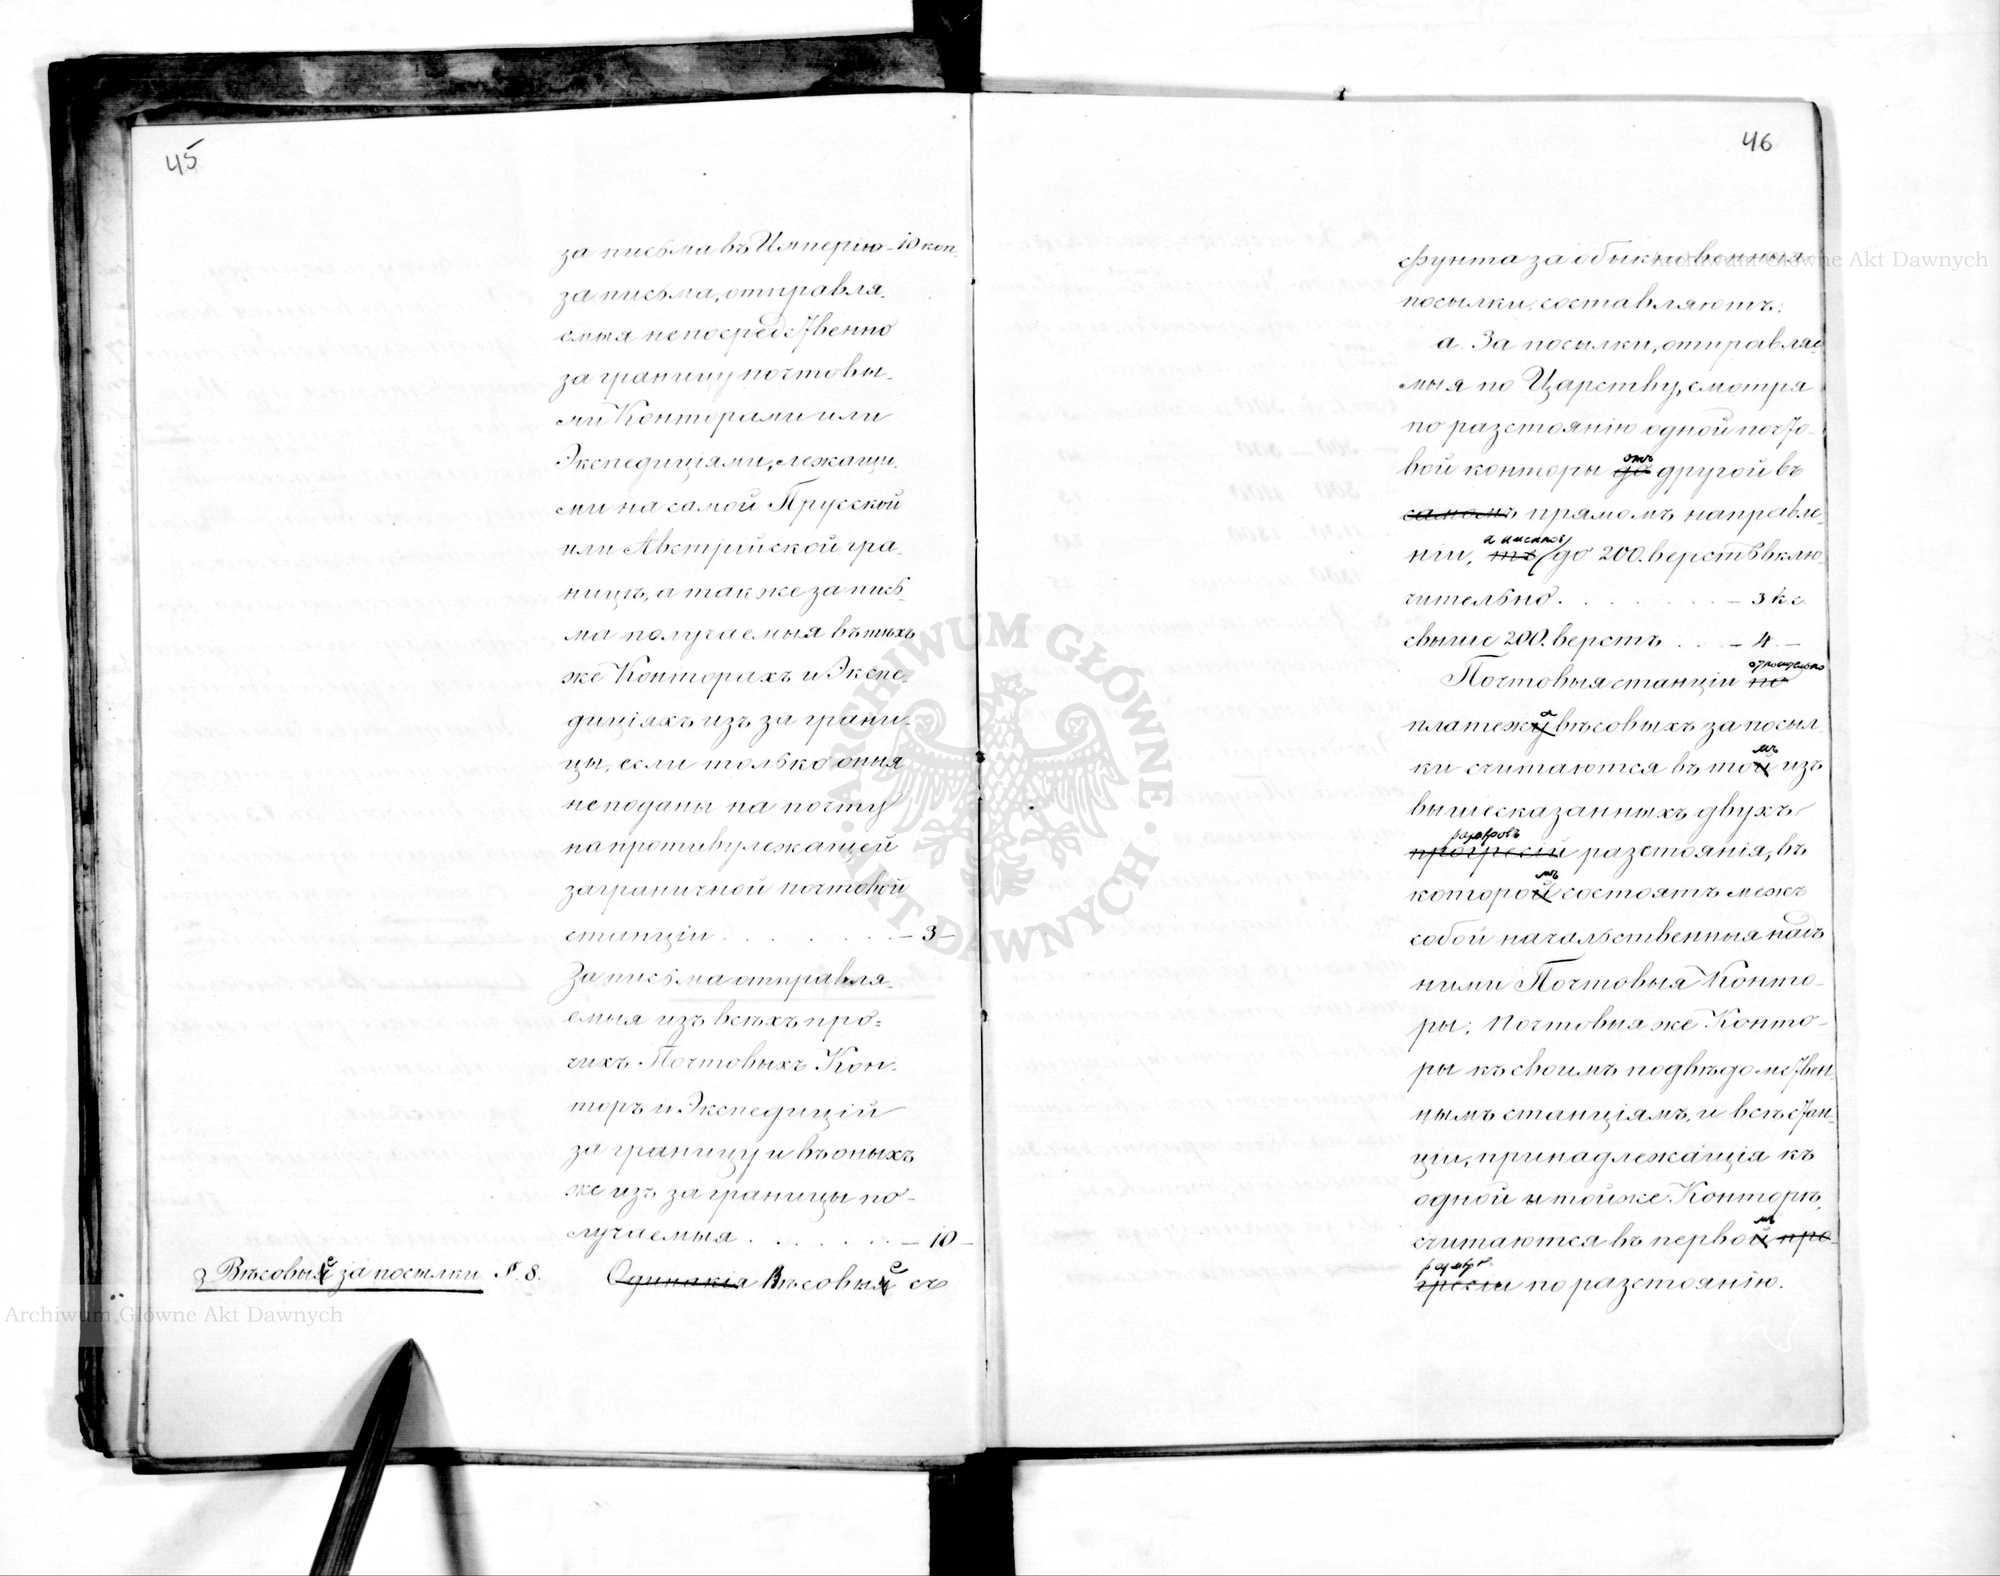 45
за письма въ Имперію - 10 коп.
за письма, отправля-
емыя непосредственно
за границу почтовы-
ми Конторами или
Экспедиціями, лежащи-
ми на самой Прусской
или Австрійской гра-
ницѣ, а также за пись-
ма получаемыя въ тѣхъ
же Конторахъ и Экспе-
диціяхъ изъ за грани-
цы, если только оныя
неподаны на почту
на противулежащей
заграничной почтовой
станціи . . . . . . . . - 3 -
За письма отправля-
емыя изъ всѣхъ про-
чихъ Почтовыхъ Кон-
торъ и Экспедицій
за границу и въ оныхъ
же изъ за границы по-
лучаемыя . . . . . . . - 10 -
Вѣсовые за посылки №. 8.
Одинакія Вѣсовые съ
46
фунта за обыкновенныя
посылки, составляютъ:
а. За посылки, отправляе-
мыя по Царству, смотря
по разстоянію одной почто-
отъ
вой конторы до другой въ
самомъ прямомъ направле-
а именно
ніи, до 200. верстъ вклю-
чительно . . . . . . . - 3 к. с.
свыше 200. верстъ . . . - 4 -
относительно
Почтовыя станціи по
платежа вѣсовыхъ за посыл-
мъ
ки считаются въ той изъ
вышесказанныхъ двухъ
размѣровъ
прогресій разстоянія, въ
мъ
которой состоятъ межъ
собой начальственныя надъ
ними Почтовыя Конто-
ры; Почтовыя же Конто-
ры къ своимъ подвѣдомствен-
нымъ станціямъ, и всѣ стан-
ціи, принадлежащія къ
одной и тойже Конторѣ,
мъ
считаются въ первой про-
размѣрѣ
гресіи по разстоянію.
Archiwum Główne Akt Dawnych
Archiwum Główne Akt Dawnych
ARCHIWUM GŁÓWNE · AKT DAWNYCH ·